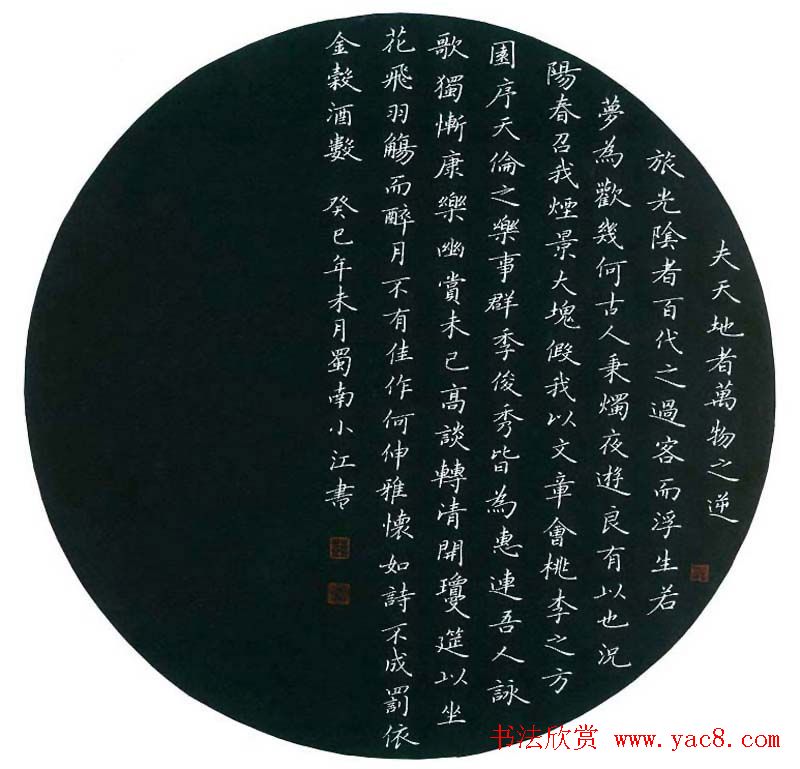 夫天地者萬物之逆
旅光陰者百代之過客而浮生若
夢為歡幾何古人秉燭夜遊良有以也況
陽春召我煙景大塊假我以文章會桃李之方
園序天倫之樂事群季俊秀皆為惠連吾人詠
歌獨慚康樂幽賞未已高談轉清開瓊筵以坐
花飛羽觴而醉月不有佳作何伸雅懷如詩不成罰依
金穀酒數 癸巳年未月蜀南小江書
书法欣赏 www.yac8.com